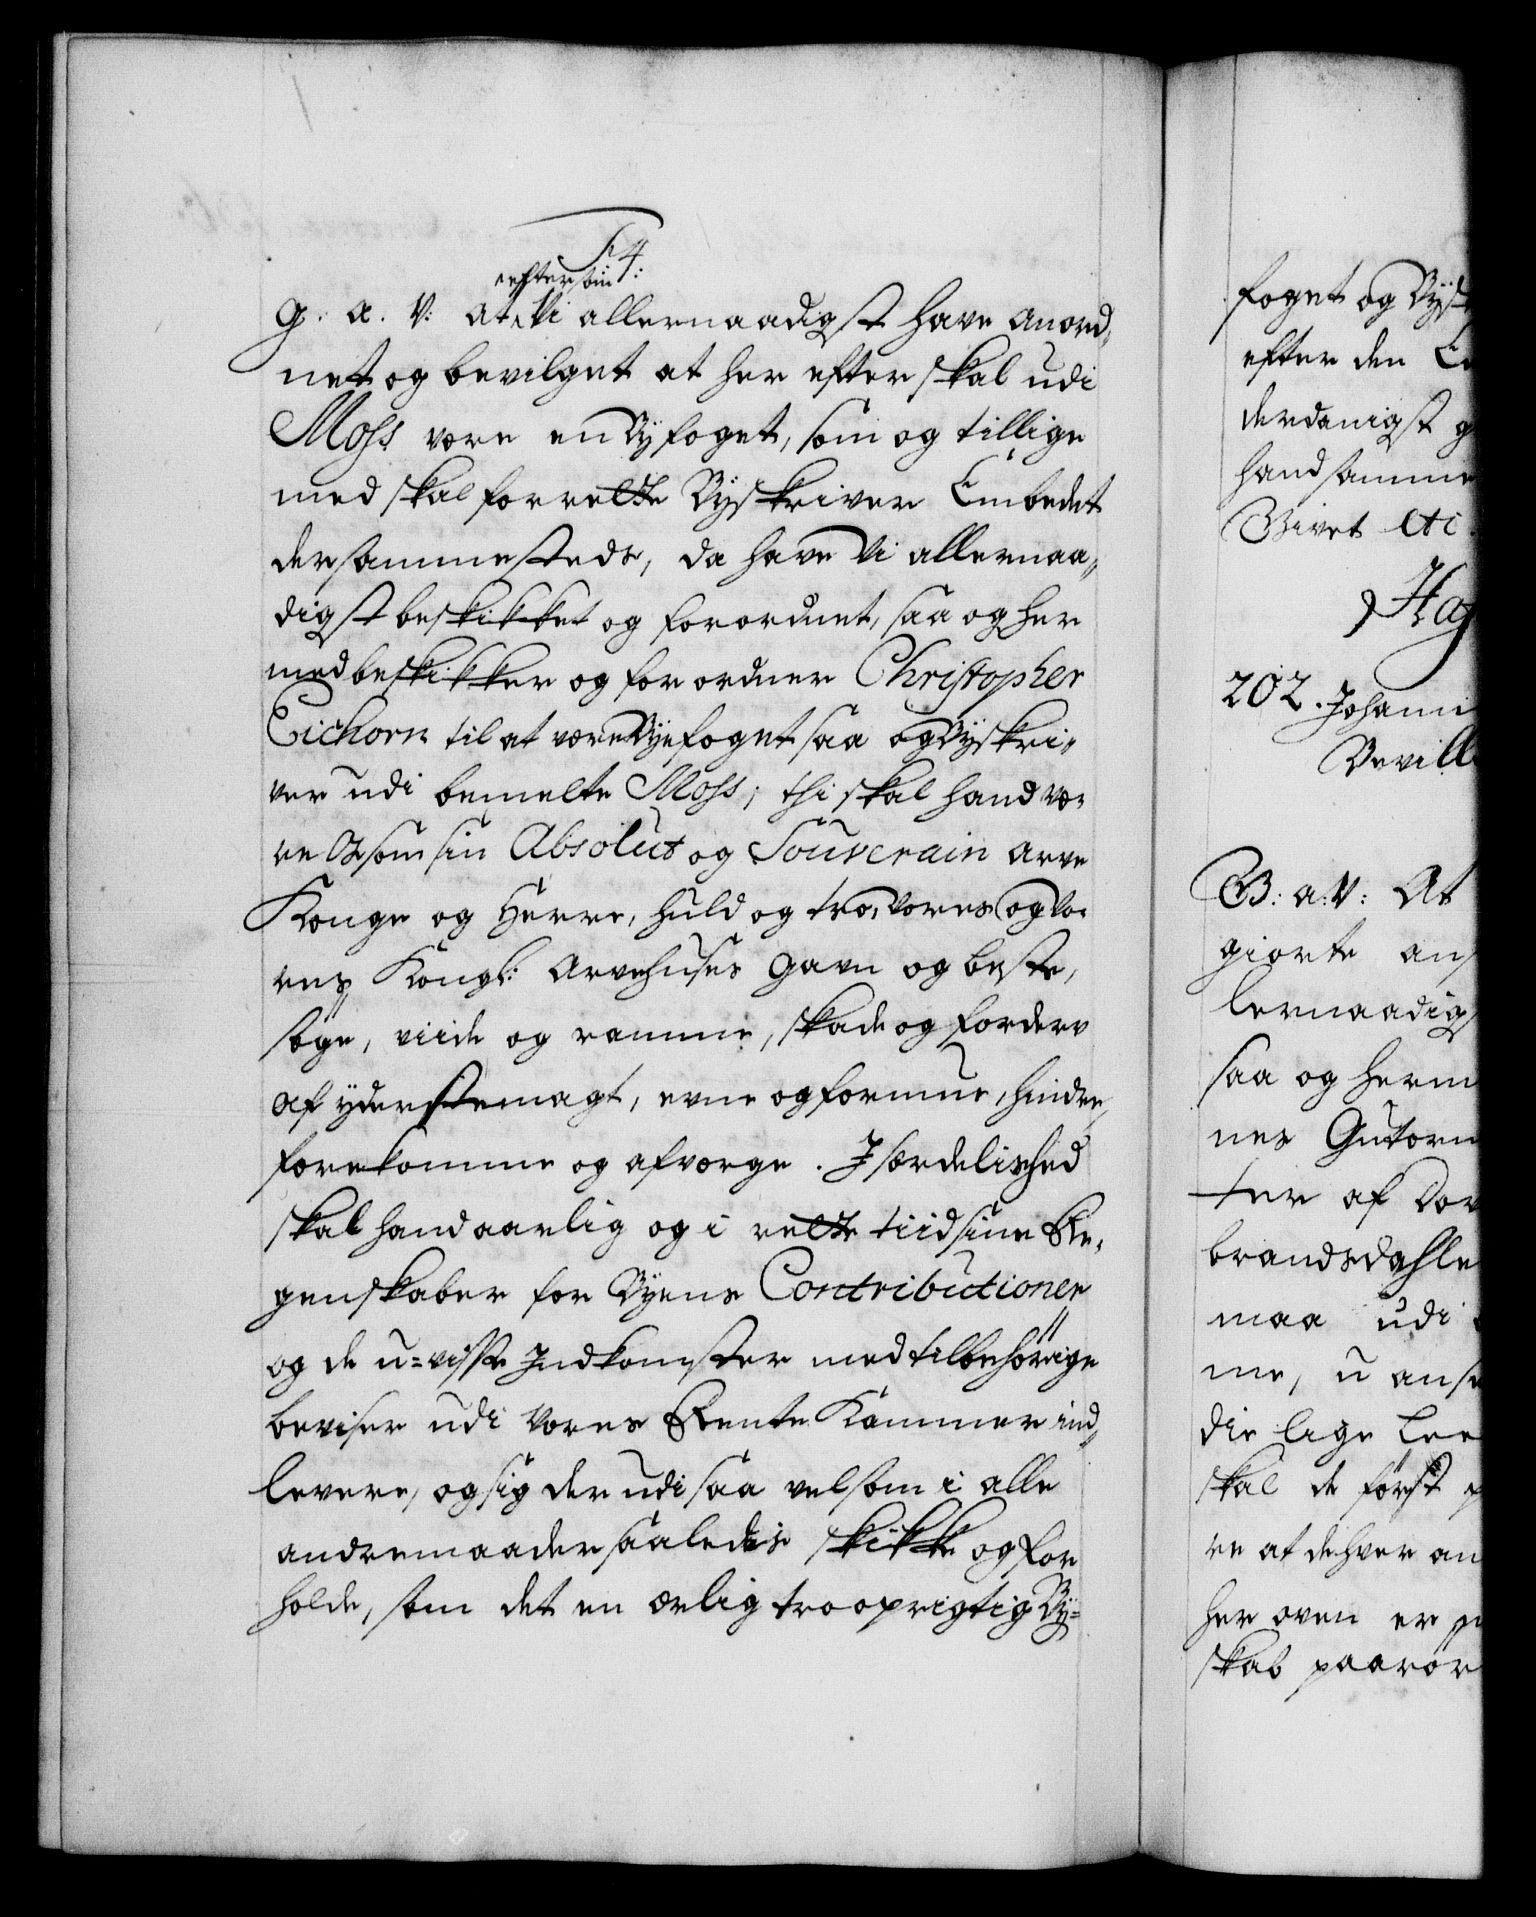 F 4:
eftersom
G. A. V: At Vi allernaadigst have anord,
net og bevilget at her efter skal udi
Moss være en Byfoget, som og tillige
med skal forrette Byskriver Embedet
dersammesteds, da have Vi allernaa,,
digst beskikket og forordnet, saa og her
med beskikker og forordner Christopher
Eichorn til at være Byefoget saa og Byskri,,
ver udi bemelte Moss; thi skal hand væ-
re Os som sin Absolut og Souverain Arve
Konge og Herre, huld og tro, Vores og Vo-
res Kongl: Arvehuses Gavn og beste,
søge, viide og ramme, skade og forderv
af yderste magt, evne og formue, hindre,
forekomme og afværge. Særdelished
skal hand aarlig og i rette tiid sine Re-
genskaber for Byens Contributioner
og de u=visse Indkomster med tilbehørige
beviser udi Vores Rente Kammer ind,,
levere, og sig der udi saa velsom i alle
andre maader saaledis skikke og for
holde, som det en ærlig tro oprigtig By=
foget og Bysk
efter den E
derdanigst g
hand samme
Givet etc.
Hag
202. Johann
Bevill
G: a: V: At
giorte ans
lernaadigs
saa og herm
nes Gutorm
ter af Dov
brandsdahle
maa udi
me, u anse
die lige Lee
skal de først p
re at de hver an
her oven er
skab paarør